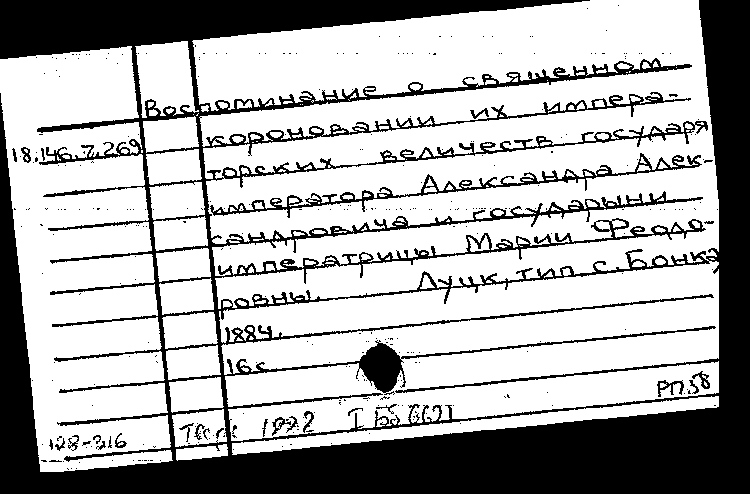 Воспоминание о священном
18.146.7.269
короновании их импера-
торских величеств государя
императора Александра Алек-
сандровича и государыни
императрицы Марии Феодо-
ровны. Луцк, тип. с. Бонка,
1884.
16 с
РП58
128-316
1992 I